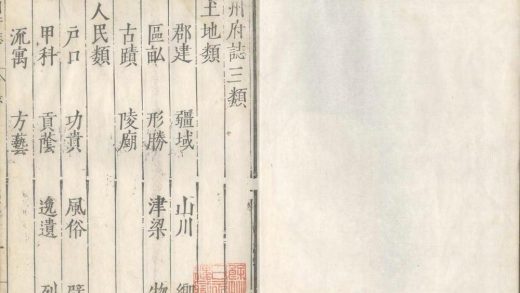 州府誌三類
土地類
郡建 疆域 山川
區畝 形勝 津梁
古蹟 陵廟
人民類
戶口 功貴 風俗
甲科 貢蔭 逸遺 列
流寓 方藝